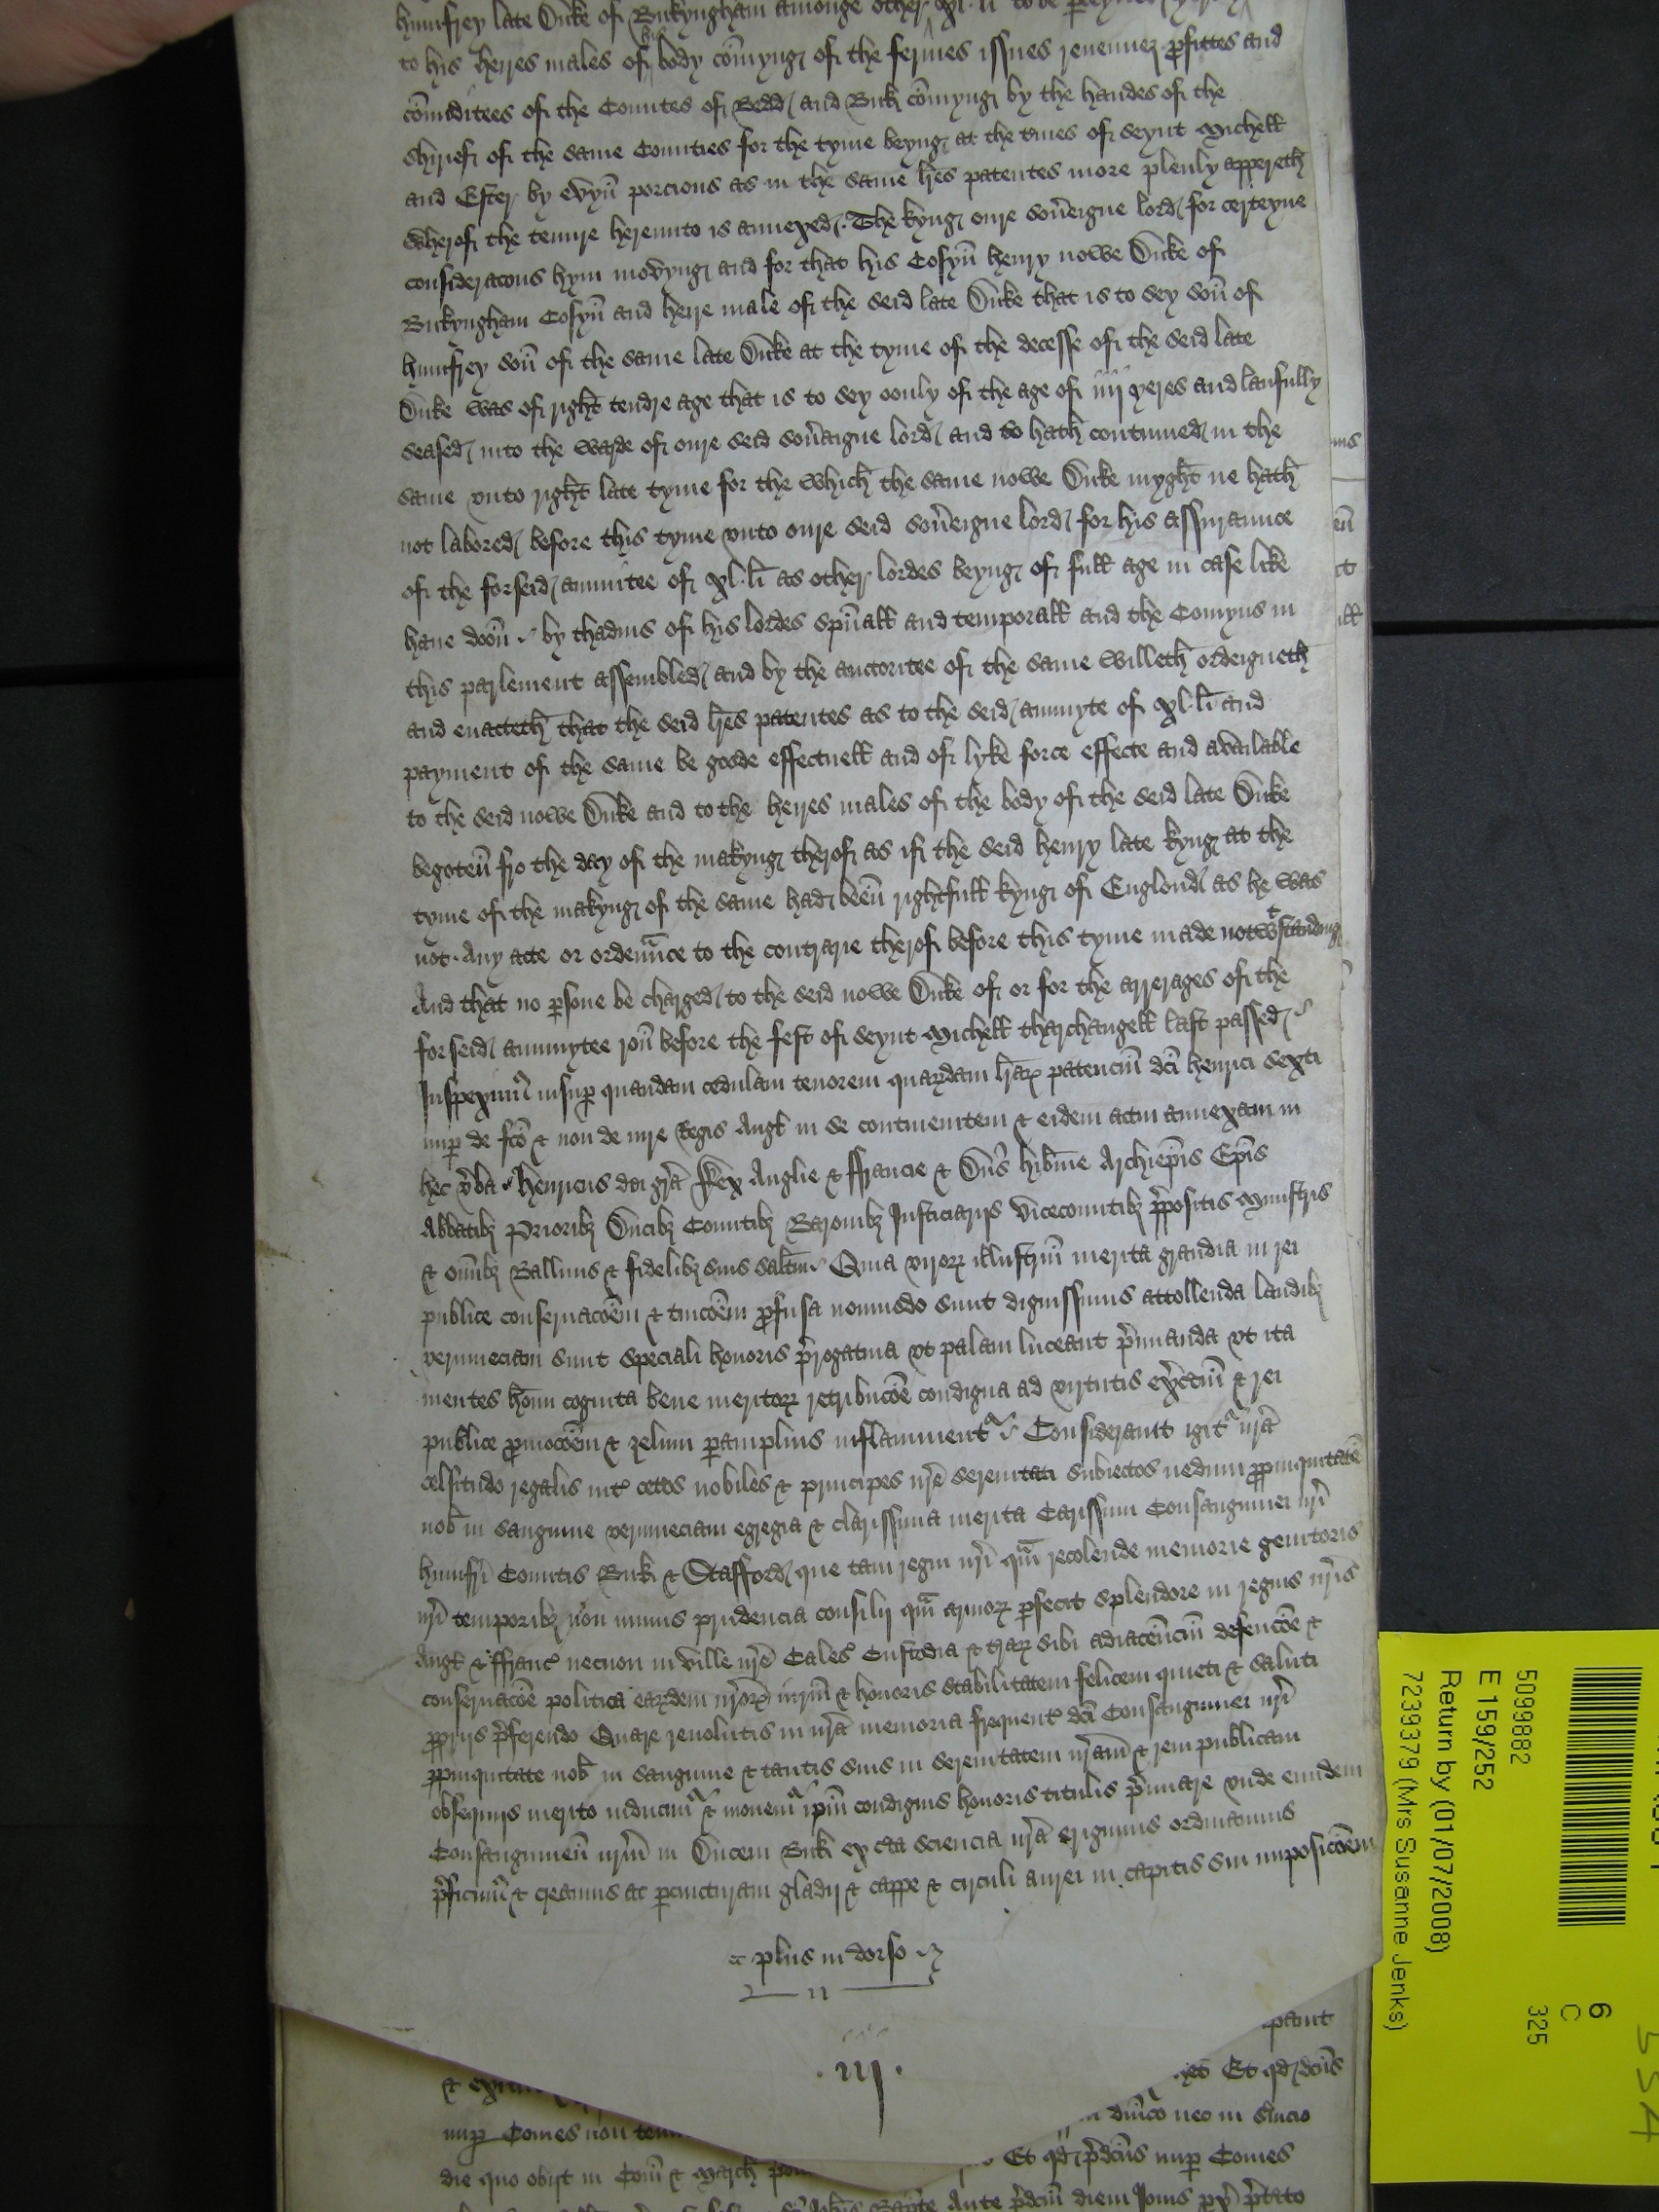 humfrey late Duke of Bukyngham amonge other xl. li to be
to his heires males of his body comyng of the fermes issues revenuez profittes and
comoditees of the Countes of Bedd and Buk comyng by the handes of the
Shirief of the same Counties for the tyme beyng at the tmes of Seynt Michell
and Ester by evyn porcions as in the same lres patentes more plenly appereth
Wherof the tenure hereunto is annexed. The kyng oure soveigne lord for certeyne
consideracons hym movyng and for that his Cosyn henry nowe Duke of
Bukyngham Cosyn and heire male of the seid late Duke that is to sey son of
humfrey son of the same late Duke at the tyme of the decesse of the seid late
Duke was of right tendre age that is to sey oonly of the age of iiij yeres and laufully
seased into the warde of oure seid sovaigne lord and so hath contynued in the
same unto right late tyme for the which the same nowe Duke myght ne hath
not labored before this tyme unto oure seid soveigne lord for his assuraunce
of the forseid annuitee of xl. li as other lordes beyng of full age in case like
have doon by thadvis of his lordes spuall and temporall and the Comyns in
this parlement assembled and by the auctoritee of the same willeth ordeigneth
and enacteth that the seid lres patentes as to the seid annuyte of xl. li and
payment of the same be goode effectuell and of lyke force effecte and available
to the seid nowe Duke and to the heires males of the body of the seid late Duke
begoten fro the day of the makyng therof as if the seid henry late kyng at the
tyme of the makyng of the same had been rightfull kyng of Englond as he was
not. Any acte or ordenance to the contrarie therof before this tyme made notwtstandyng
And that no psone be charged to the seid nowe Duke of or for the arrerages of the
forseid annuytee ron before the fest of Seynt Michell tharchangell last passed
Inspeximus insup quandam cedulam tenorem quardam lrar patenciu dci henrici sexti
nup de fco & non de iure Regis Angl in se continentem & eidem actui annexam in
hec vba henricus dei gra Rex Anglie & ffrancie & Dns hibnie Archiepis Epis
Abbatibz Prioribz Ducibz Comitibz Baronibz Justiciarijs vicecomitibz ppositis Ministris
& omibz Ballivis & fidelibz suis saltm Quia viror illustriu merita grandia in rei
publice conservacoem & tuicoem pfusa nonmodo sunt dignissimis attollenda laudibz
verumeciam sunt speciali honoris progatiua ut palam luceant pmianda ut ita
mentes hoim cognita bene meritor retribucoe condigna ad virtutis exrciciu & rei
publice pmocoem & zelum pamplius inflammentr Considerant igitr nra
celsitudo regalis int cetos nobiles & principes nre serenitati subiectos nedum ppinquitate
nob in sanguine verumeciam egregia & clarissima merita Carissimi Consanguinei nri
humfri Comitis Buk & Stafford que tam regni nri qam recolende memorie genitoris
nri temporibz non minus prudencia consilij qam armor pfecit splendore in regnis nris
Angl & ffranc necnon in ville nre Cales Custodia & trar sibi adiacenciu defencoe &
conservacoe politica eardem nror iuriu & honoris stabilitatem felicem quieti & saluti
pprijs pferendo Quare revolutis in nra memoria frequent dci Consanguinei nri
ppinquitate nob in sanguine & tantis suis in serenitatem nram & rem publicam
obsequijs merito inducimr & monemr ipm condignis honoris titulis pmiare unde eundem
Consanguineu nrm in Ducem Buk ex cta sciencia nra erigimus ordinamus
pficimus & creamus ac pcincturam gladij & cappe & circuli aurei in capitis sui imposicoem
plus in dorso
iij
pant
Et qd dcus
nup Comes non
nec in
die quo obijt in
Et qd pdcus nup Comes
Ante pdcm diem
5099882
E 159/252
Return by (01/07/2008)
7239379 (Mrs Susanne Jenks)
6
C
325
554